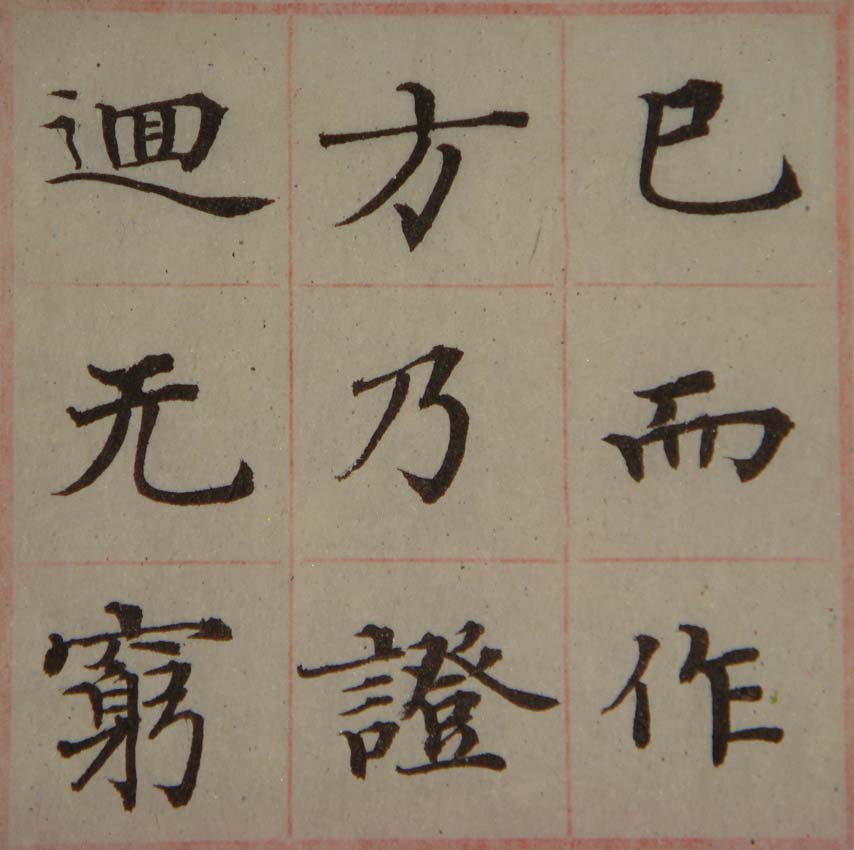 巳而作
方乃證
迴无窮